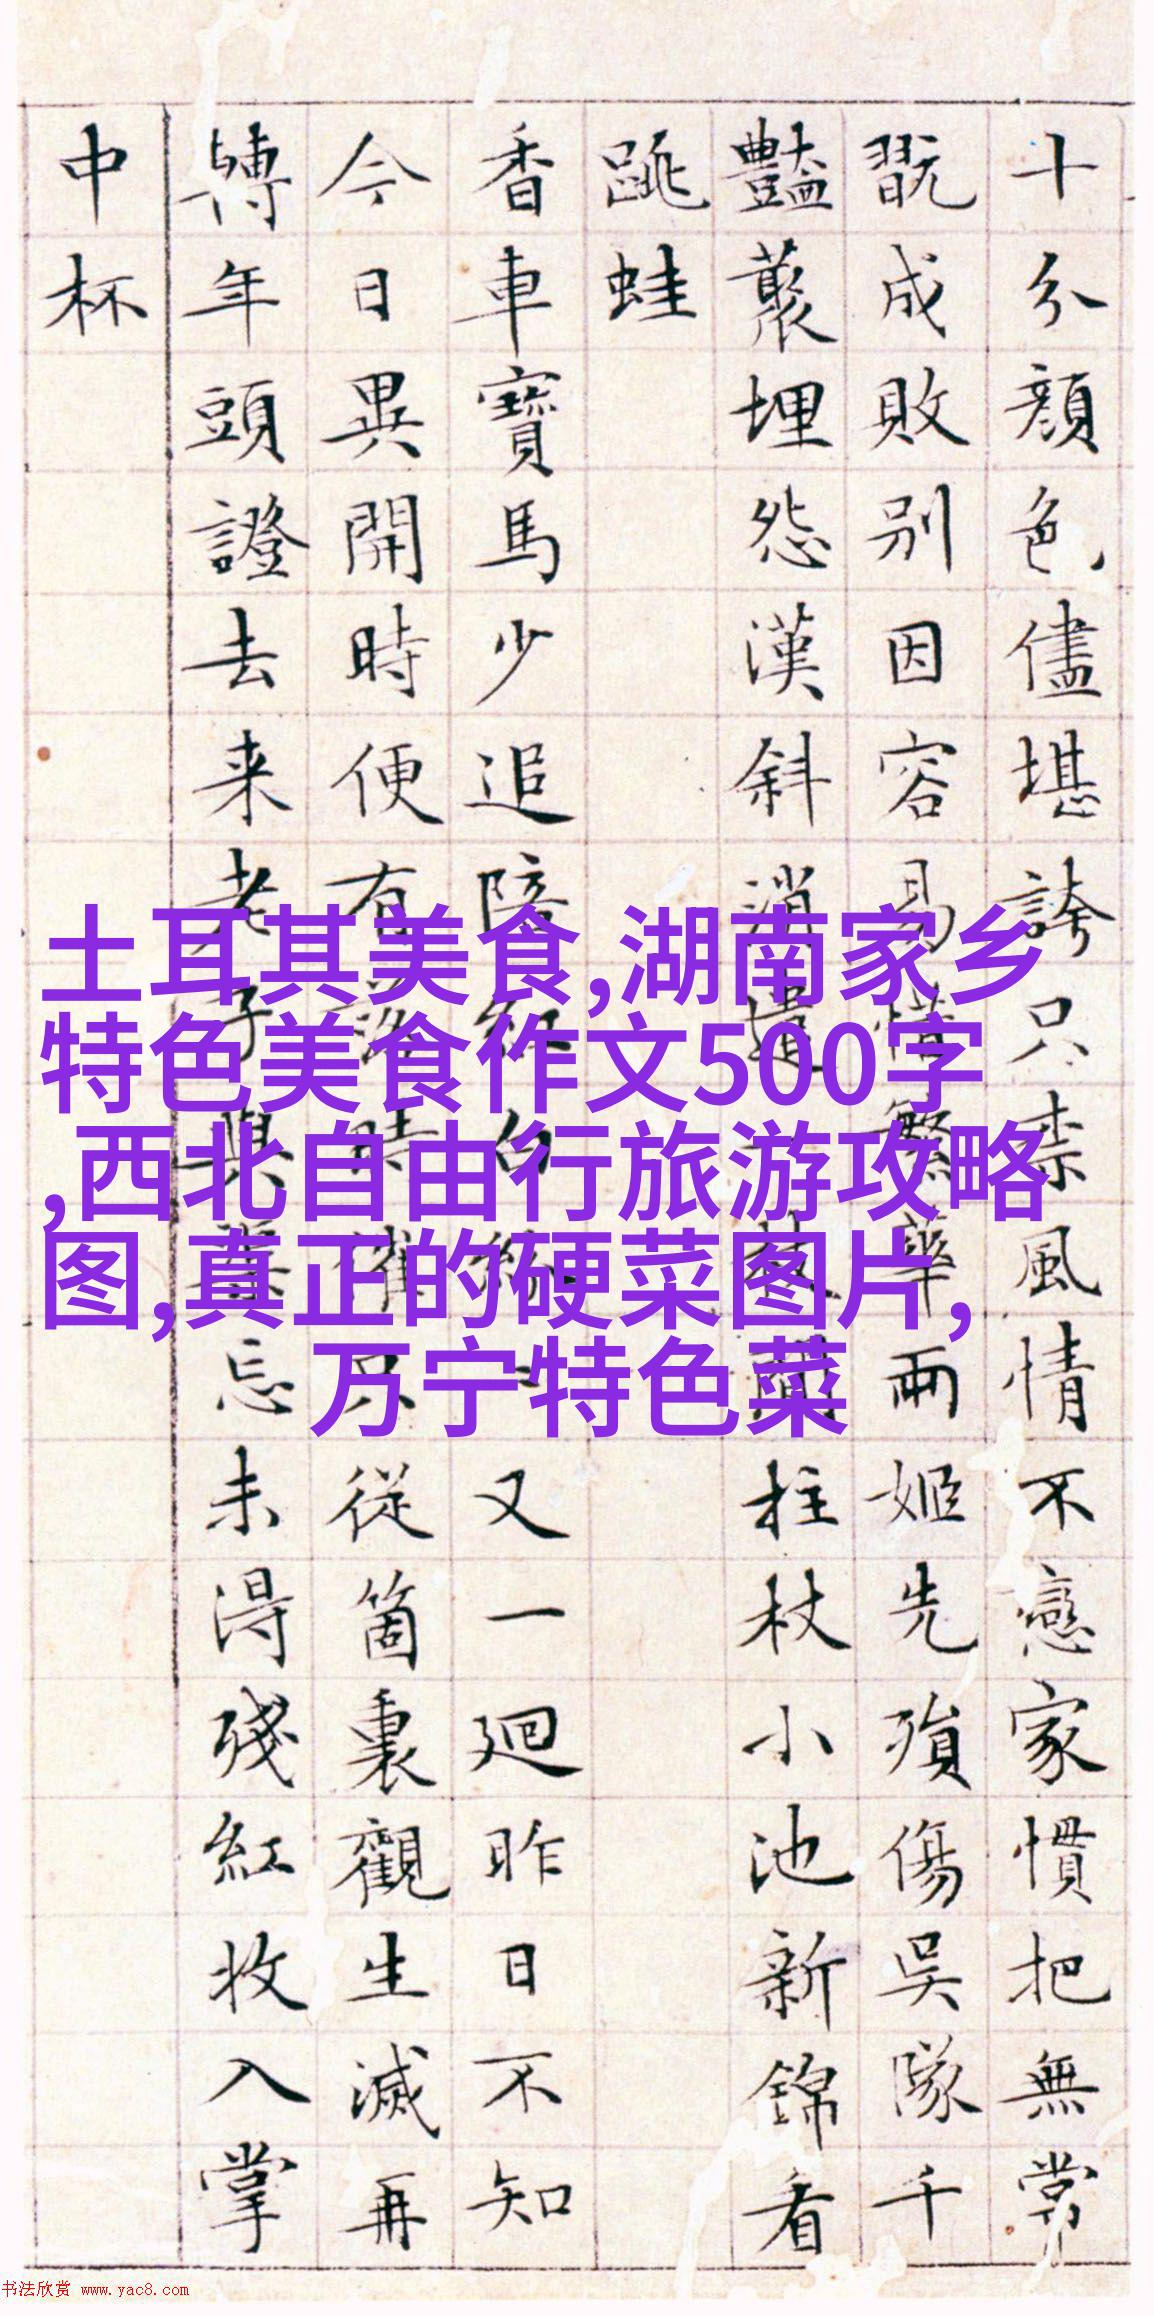 十分顔色儘堪誇只柰風情不戀家慣把無常
翫成敗别因容易惜繁華兩姬先殞傷吳隊千
豔藂埋怨漢斜消遣一枝閒柱杖小池新錦看
跳蛙
香車寶馬少追陪紅白紛紛又一廻昨日不知
今日異開時便有落時催只從箇裏觀生滅再
轉年頭證去来老子與華忘未淂殘紅收入掌
中杯
土耳其美食,湖南家乡
特色美食作文500字
,西北自由行旅游攻略
图,真正的硬菜图片,
万宁特色菜
书法欣赏 www.yac8.com